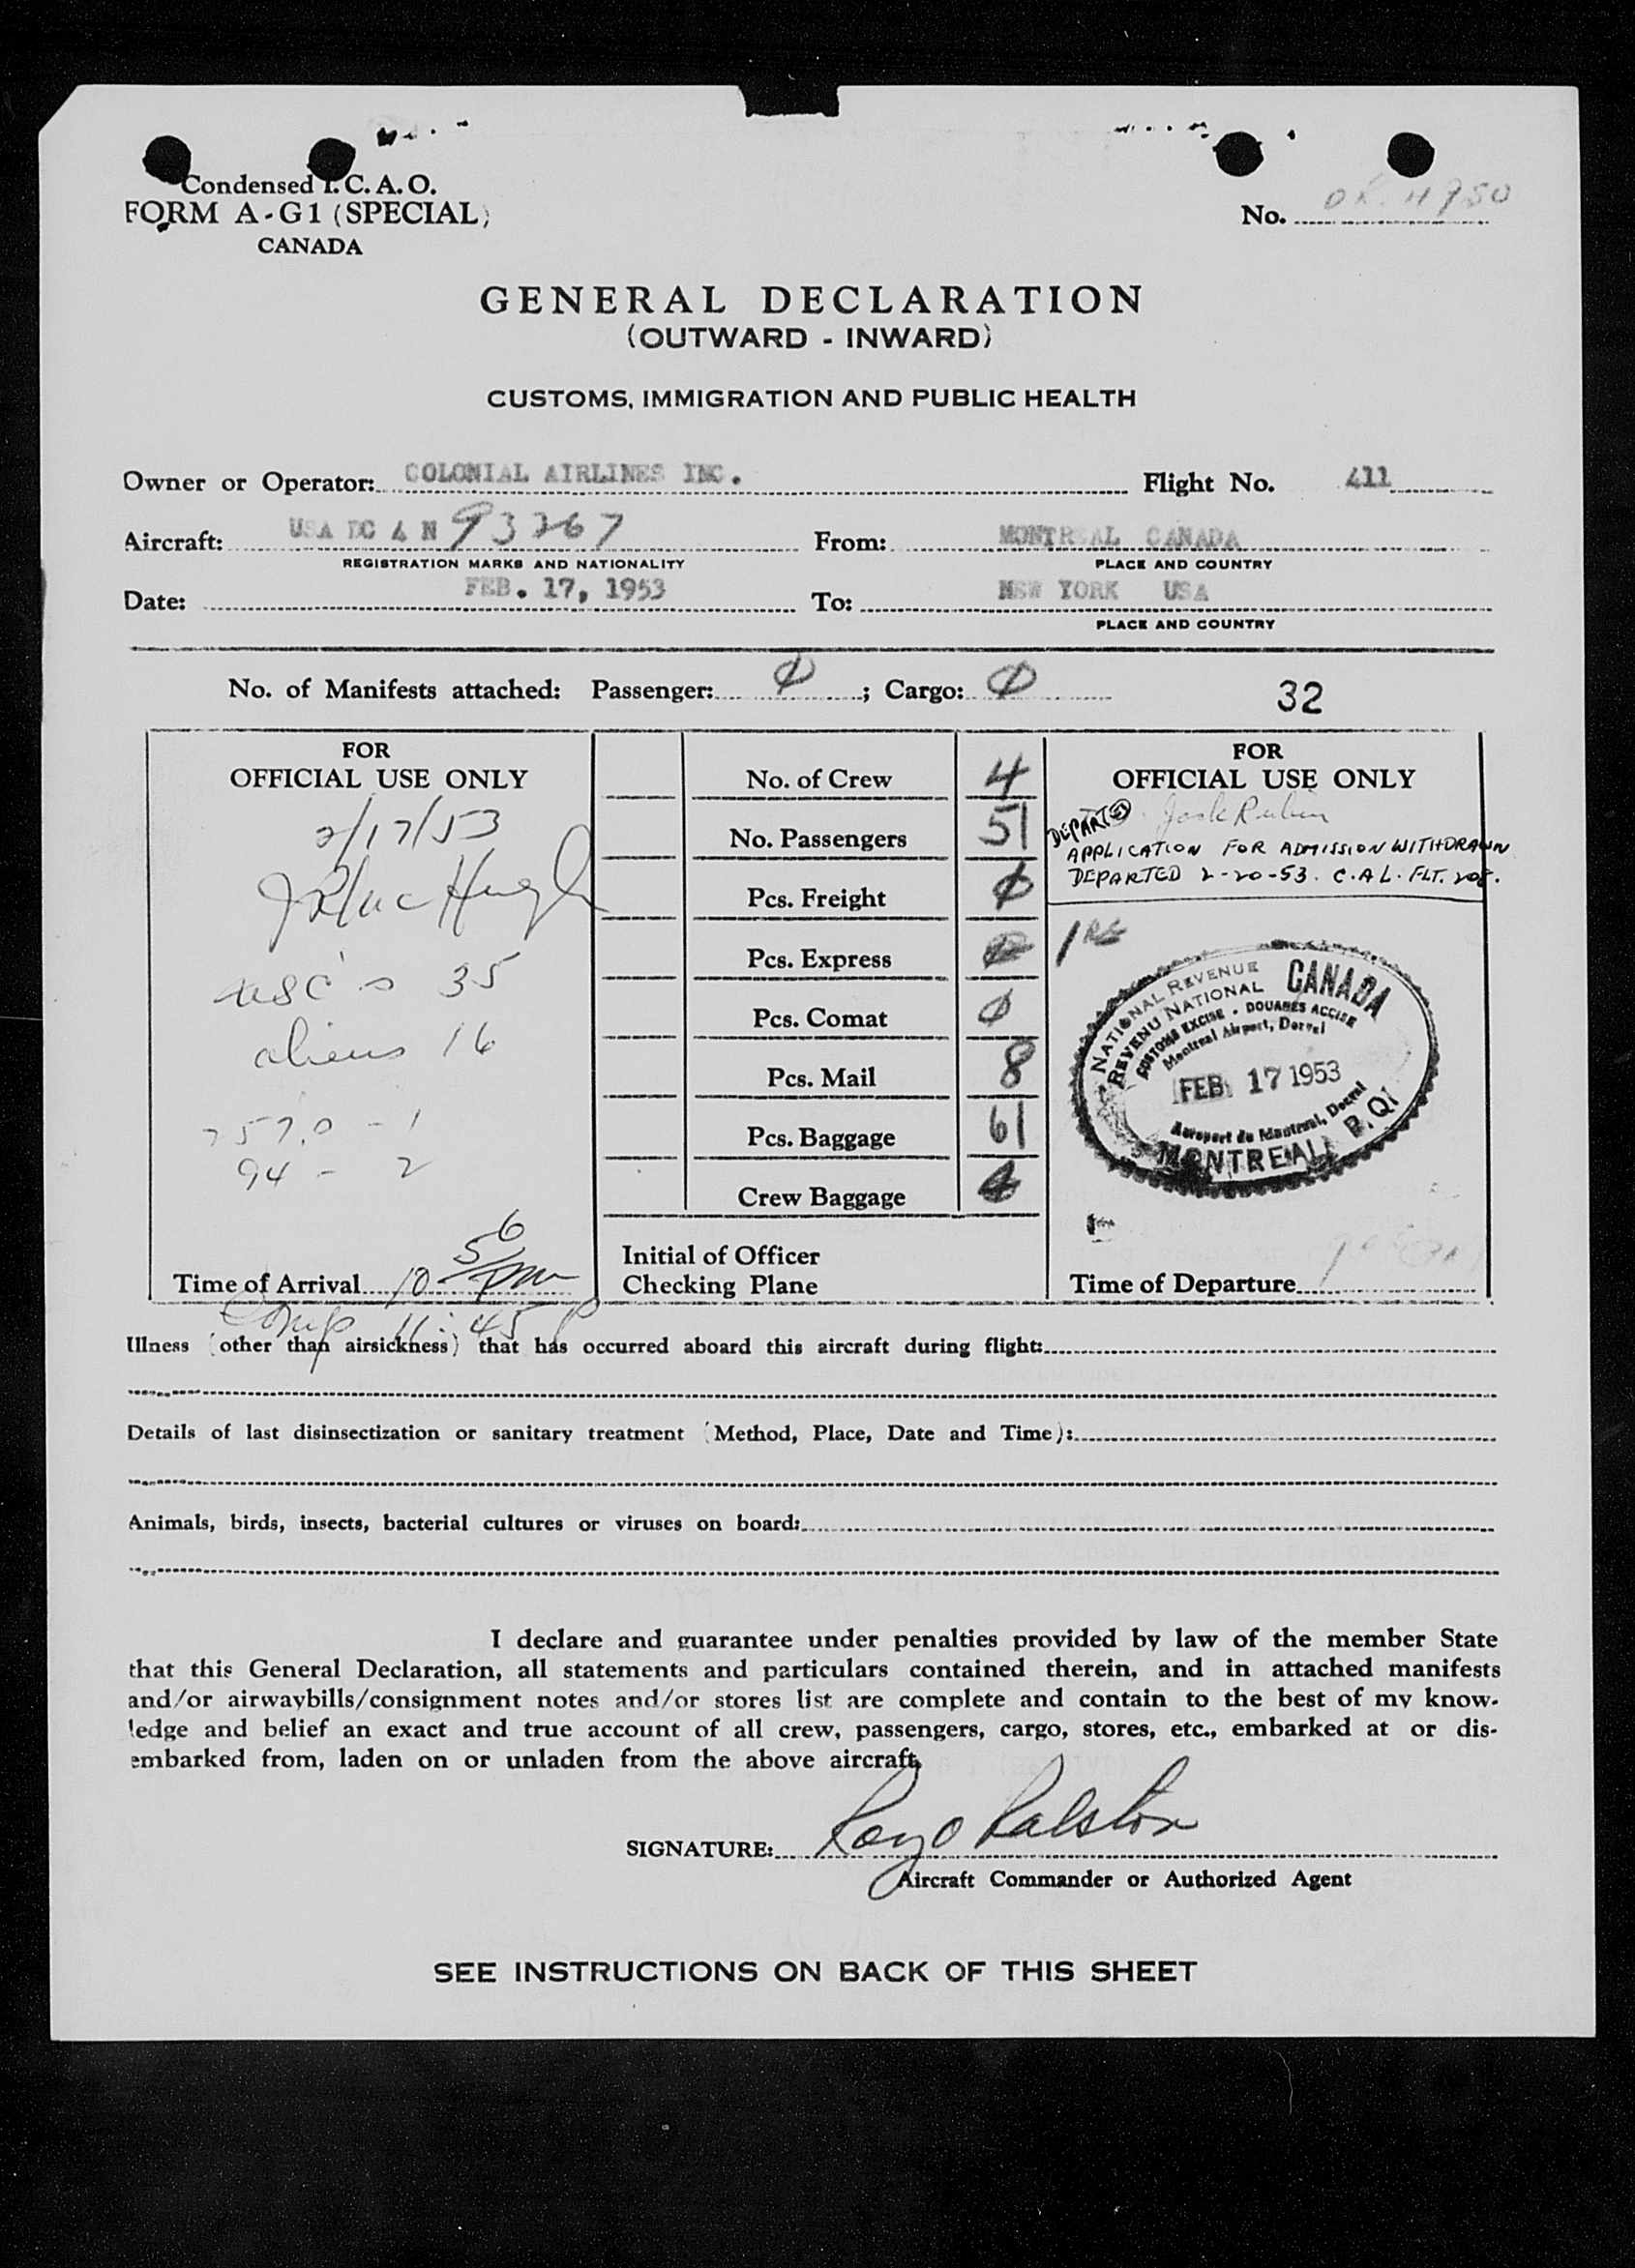 Condensed I. C. A. O.
FORM A-G1 (SPECIAL)
CANADA
No.
GENERAL DECLARATION
(OUTWARD - INWARD)
CUSTOMS, IMMIGRATION AND PUBLIC HEALTH
Owner or Operator: COLONIAL AIRLINES INC. Flight No. 411
Aircraft: USA DC 4 N 93267 From: MONTREAL CANADA
REGISTRATION MARKS AND NATIONALITY PLACE AND COUNTRY
Date: FEB. 17, 1953 To: NEW YORK USA
PLACE AND COUNTRY
No. of Manifests attached: Passenger: Ø; Cargo: Ø 32
FOR
OFFICIAL USE ONLY
2/17/53
USC's 35
aliens 16
94 - 2
Time of Arrival 10 56 pm
Comp 11:45 P
No. of Crew 4
No. Passengers 51
Pcs. Freight Ø
Pcs. Express
Pcs. Comat Ø
Pcs. Mail 8
Pcs. Baggage 61
Crew Baggage 4
Initial of Officer
Checking Plane
FOR
OFFICIAL USE ONLY
DEPARTED Jack Rubin
APPLICATION FOR ADMISSION WITHDRAWN
DEPARTED 2-20-53. C.A.L. FLT. 208.
NATIONAL REVENUE CANADA
REVENU NATIONAL
CUSTOMS EXCISE - DOUANES ACCISE
Montreal Airport, Dorval
FEB 17 1953
Aeroport de Montreal, Dorval
MONTREAL P. Q.
Time of Departure
Illness (other than airsickness) that has occurred aboard this aircraft during flight:
Details of last disinsectization or sanitary treatment (Method, Place, Date and Time):
Animals, birds, insects, bacterial cultures or viruses on board:
I declare and guarantee under penalties provided by law of the member State
that this General Declaration, all statements and particulars contained therein, and in attached manifests
and/or airwaybills/consignment notes and/or stores list are complete and contain to the best of my know-
ledge and belief an exact and true account of all crew, passengers, cargo, stores, etc., embarked at or dis-
embarked from, laden on or unladen from the above aircraft.
SIGNATURE: Ray O Ralston
Aircraft Commander or Authorized Agent
SEE INSTRUCTIONS ON BACK OF THIS SHEET